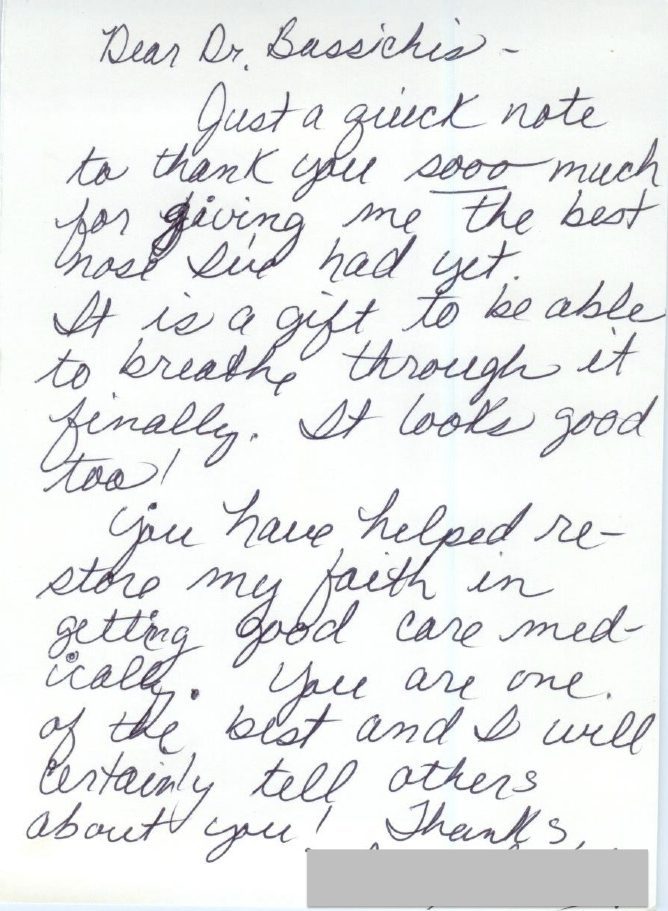 Dear Dr. Bassichis -
Just a quick note
to thank you sooo much
for giving me the best
nose I've had yet.
It is a gift to be able
to breathe through it
finally. It looks good
too!
You have helped re-
store my faith in
getting good care med-
ically. You are one
of the best and I will
certainly tell others
about you! Thanks,